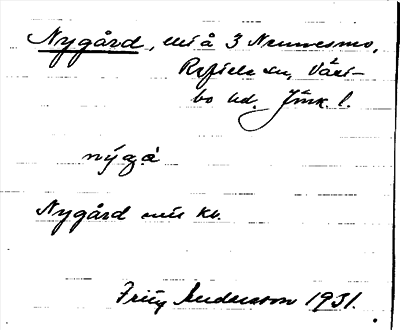 Nygård, mi å 3 Nennesmo,
Reftele sn, Västbo hd. Jönk. l.
nýgå
Nygård mis kv.
Fritz Andersson 1931.